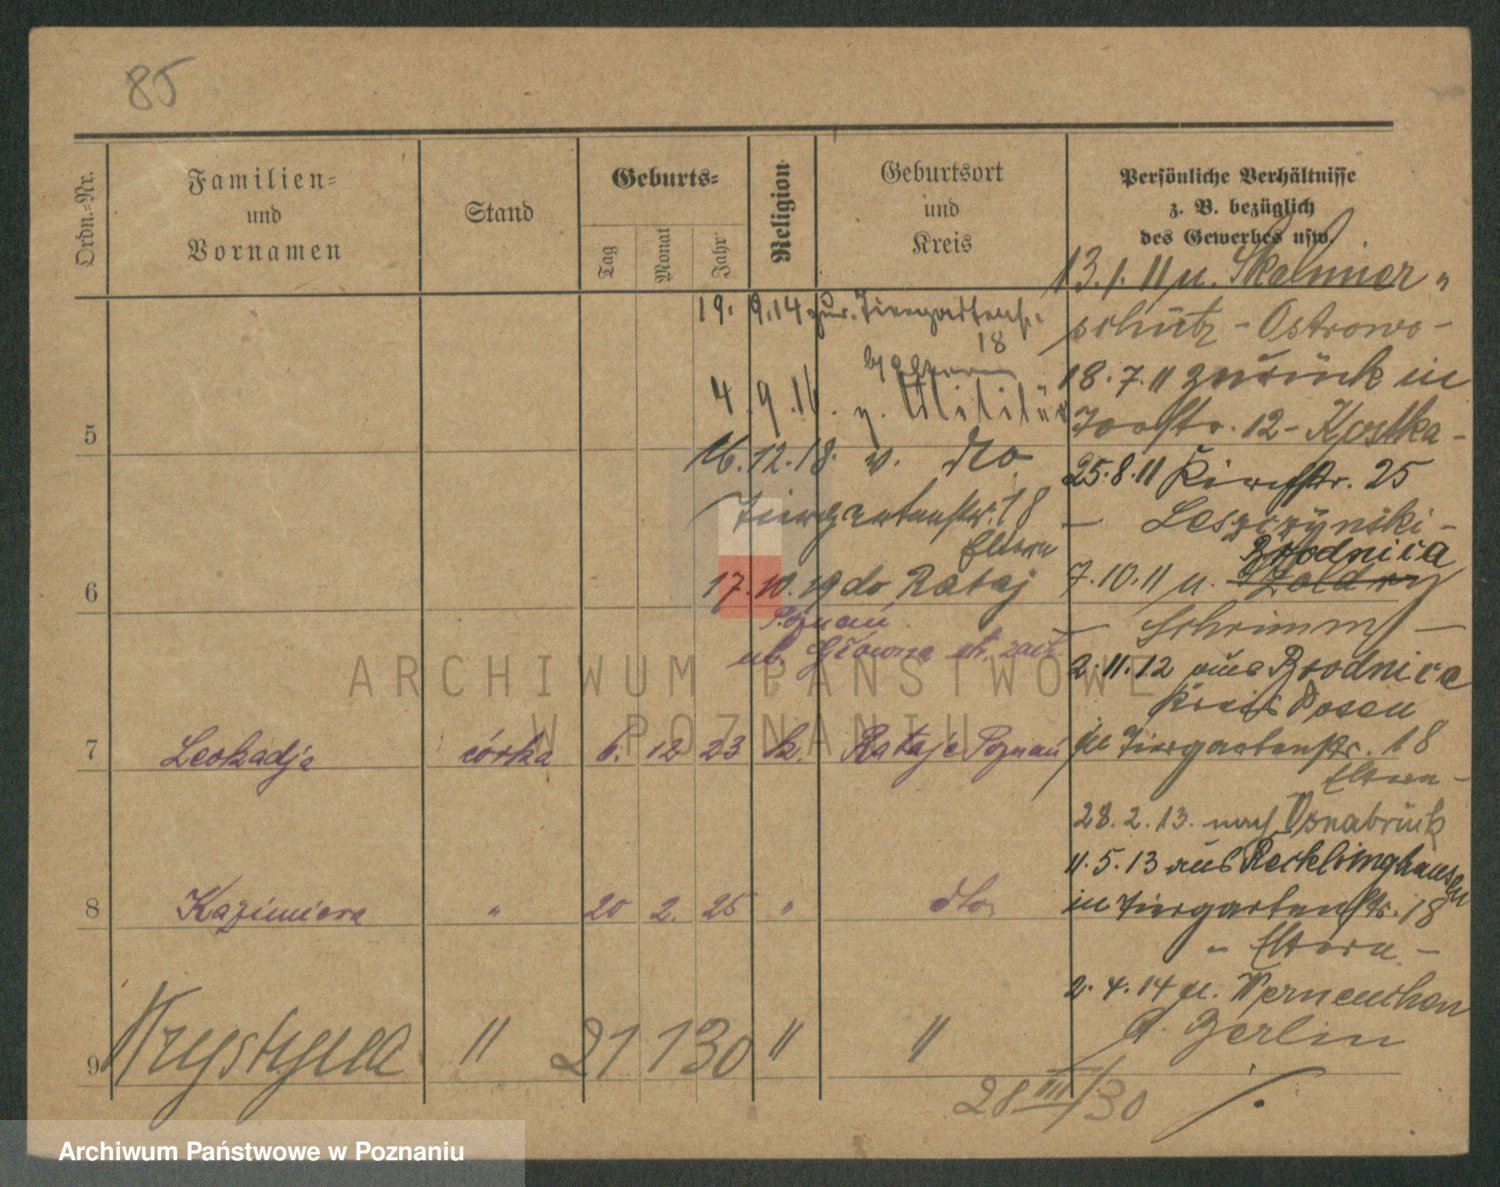 85
Ordn.-Nr.
Familien-
und
Vornamen
Stand
Geburts-
Tag
Monat
Jahr
Religion
Geburtsort
und
Kreis
Persönliche Verhältnisse
z. B. bezüglich
des Gewerbes usw.
19. 9.14 zur. Tiergartenstr.
18
4. 9. 16. z. Militär
16.12.18. v. dto
Tiergartenstr. 18
Eltern
17.10.19 do Rataj
Poznań
ul. Główna
13.1.11 n. Skalmier-
schütz - Ostrowo -
18.7.11 zurück in
Torstr. 12 - Kostka -
25.8.11 Kirchstr. 25
- Leszczyński -
Brodnica
7.10.11 n.
- Schrimm -
2.11.12 aus Brodnica
Kreis Posen
in Tiergartenstr. 18
Eltern -
28.2.13. nach Osnabrück
11.5.13 aus Recklinghausen
in Tiergartenstr. 18
- Eltern -
2.4.14 n. Werneuchen
b. Berlin
5
6
7 Leokadja córka 6. 12 23 k. Rataje Poznań
8 Kazimiera " 20 2. 25 " dto
9 Krystyna " 21 1 30 " "
28 III/30
ARCHIWUM PAŃSTWOWE
W POZNANIU
Archiwum Państwowe w Poznaniu